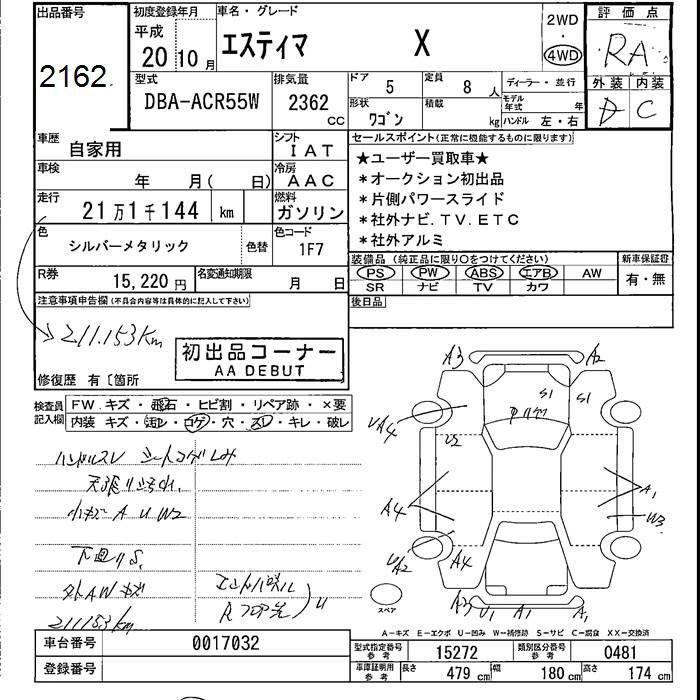 出品番号
2162
初度登録年月
平成
20 10月
車名・グレード
エスティマ X
2WD
・
4WD
評価点
RA
型式
DBA-ACR55W
排気量
2362
CC
ドア
5
定員
8 人
ディーラー・並行
形状
ワゴン
積載
kg
モデル年式
年
ハンドル 左・右
外装 内装
D C
車歴
自家用
シフト
IAT
車検
年 月( 日)
冷房
AAC
走行
21万1千144 km
燃料
ガソリン
色
シルバーメタリック
色替
色コード
1F7
R券
15,220円
名変通知期限
月 日
セールスポイント(正常に機能するものに限ります)
★ユーザー買取車★
*オークション初出品
*片側パワースライド
*社外ナビ.TV.ETC
*社外アルミ
装備品 (純正品に限り○をつけてください)
PS PW ABS エアB AW
SR ナビ TV カワ
新車保証書
有・無
後日品
注意事項申告欄(不具合内容等は具体的に記入して下さい)
211.153Km
初出品コーナー
AA DEBUT
修復歴 有〔箇所
検査員記入欄
FW.キズ・飛石・ヒビ割・リペア跡・×要
内装 キズ・汚レ・コゲ・穴・スレ・キレ・破レ
ハンドルスレ シートコゲしみ
小キズ A U W2
下回りS.
外AWキズ
211153km
A3 A2
S1 S1
UA4
U2
A4
A1
W3
UA2
A4
A3 U1 A1 A1
スペア
A-キズ E-エクボ U-凹み W-補修跡 S-サビ C-腐食 XX-交換済
車台番号
0017032
登録番号
型式指定番号
参考
15272
類別区分番号
参考
0481
車庫証明用
参考
長さ 479 cm 幅 180 cm 高さ 174 cm